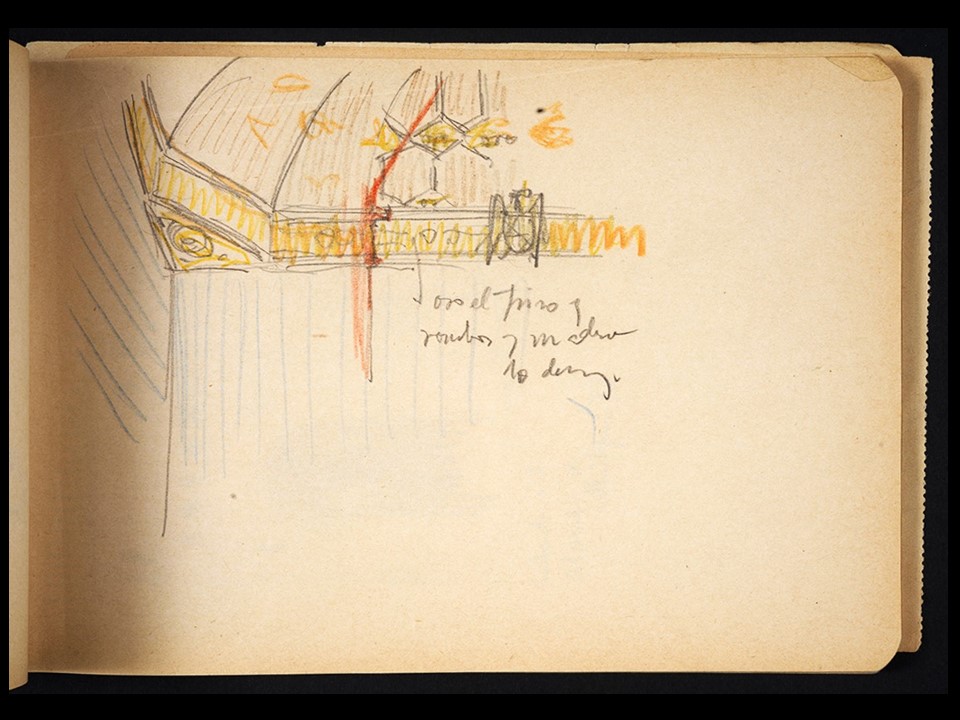 oro el friso y
rombos y madera
lo demas.